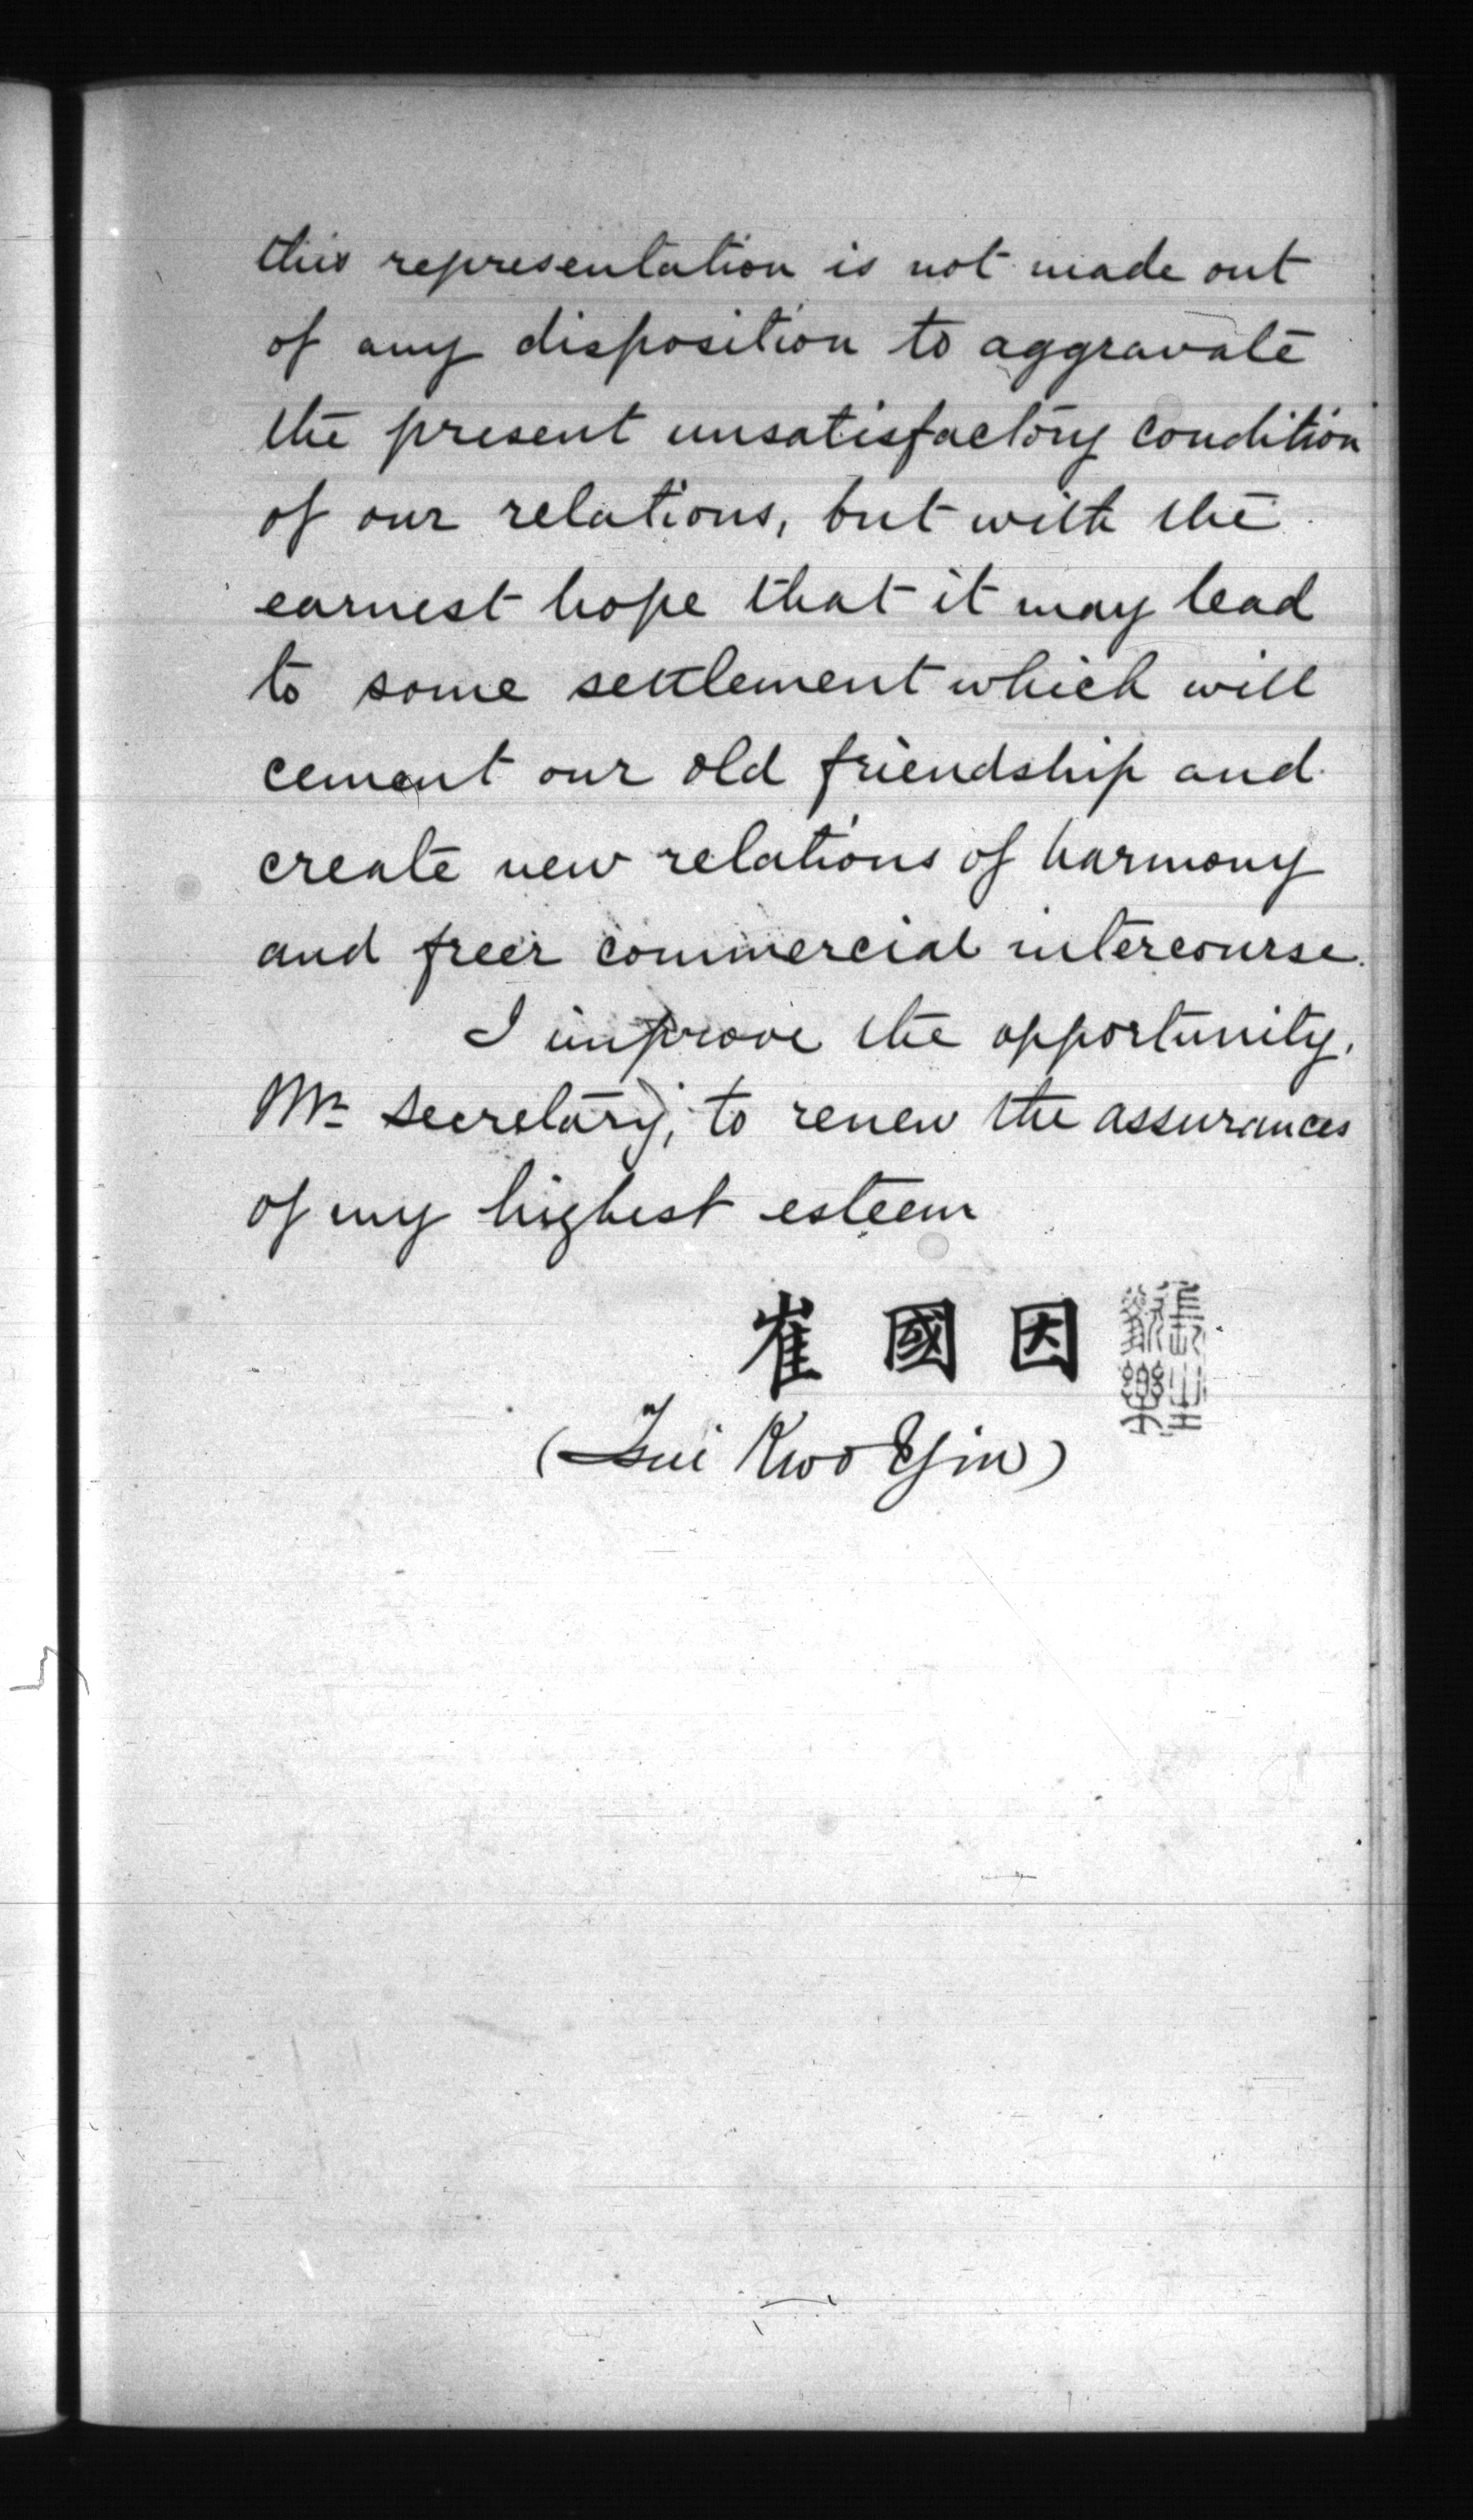 this representation is not made out
of any disposition to aggravate
the present unsatisfactory condition
of our relations, but with the
earnest hope that it may lead
to some settlement which will
cement our old friendship and
create new relations of harmony
and freer commercial intercourse.
I improve the opportunity,
Mr Secretary, to renew the assurances
of my highest esteem
崔 國 因
(Tsui Kwo Yin)